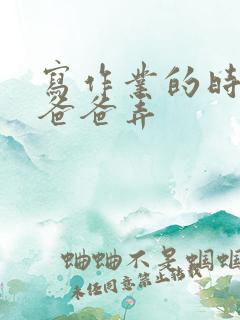 寫作業的時
爸爸弄
蛐蛐不是蝈蝈
未经同意禁止转载